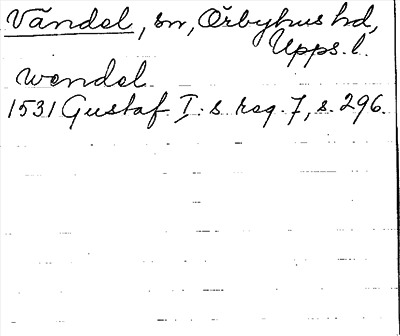 Vändel, sn, Örbyhus hd,
Upps. l.
Wendel.
1531 Gustaf I:s reg. 7, s. 296.